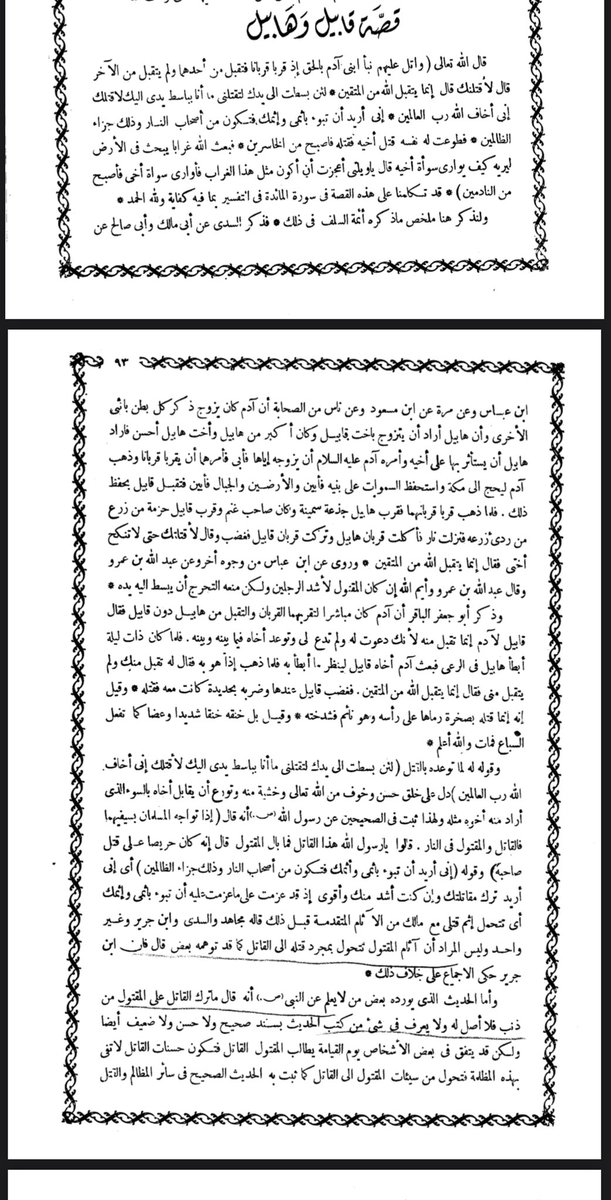 قصة قابيل وهابيل
قال الله تعالى ( واتل عليهم نبأ ابنى آدم بالحق إذ قربا قربانا فتقبل من أحدهما ولم يتقبل من الآخر
قال لأقتلنك قال إنما يتقبل الله من المتقين * لئن بسطت الى يدك لتقتلنى ما أنا بباسط يدى اليك لأقتلك
إنى أخاف الله رب العالمين * إنى أريد أن تبوء باثمى وإثمك فتكون من أصحاب النار وذلك جزاء
الظالمين * فطوعت له نفسه قتل أخيه فقتله فاصبح من الخاسرين * فبعث الله غرابا يبحث فى الأرض
ليريه كيف يوارى سوأة أخيه قال ياويلتى أعجزت أن أكون مثل هذا الغراب فأوارى سوأة أخى فأصبح
من النادمين ) * قد تكلمنا على هذه القصة فى سورة المائدة فى التفسير بما فيه كفاية ولله الحمد *
ولنذكر هنا ملخص ماذكره أئمة السلف فى ذلك * فذكر السدى عن أبى مالك وأبى صالح عن
٩٣
ابن عباس وعن مرة عن ابن مسعود وعن ناس من الصحابة أن آدم كان يزوج ذكر كل بطن بانثى
الأخرى وأن هابيل أراد أن يتزوج باخت قابيل وكان أكبر من هابيل وأخت هابيل أحسن فاراد
هابيل أن يستأثر بها على أخيه وأمره آدم عليه السلام أن يزوجه إياها فأبى فأمرهما أن يقربا قربانا وذهب
آدم ليحج الى مكة واستحفظ السموات على بنيه فأبين والأرضين والجبال فأبين فتقبل قابيل بحفظ
ذلك . فلما ذهب قربا قربانهما فقرب هابيل جذعة سمينة وكان صاحب غنم وقرب قابيل حزمة من زرع
من ردىء زرعه فنزلت نار فأكلت قربان هابيل وتركت قربان قابيل فغضب وقال لأقتلنك حتى لاتنكح
أختى فقال إنما يتقبل الله من المتقين * وروى عن ابن عباس من وجوه أخر وعن عبد الله بن عمرو
وقال عبد الله بن عمرو وأيم الله إن كان المقتول لأشد الرجلين ولكن منعه التحرج أن يبسط اليه يده *
وذكر أبو جعفر الباقر أن آدم كان مباشرا لتقربهما القربان والتقبل من هابيل دون قابيل فقال
قابيل لآدم إنما تقبل منه لأنك دعوت له ولم تدع لى وتوعد أخاه فيما بينه وبينه . فلما كان ذات ليلة
أبطأ هابيل فى الرعى فبعث آدم أخاه قابيل لينظر ما أبطأ به فلما ذهب إذا هو به فقال له تقبل منك ولم
يتقبل منى فقال إنما يتقبل الله من المتقين . فغضب قابيل عندها وضربه بحديدة كانت معه فقتله * وقيل
إنه إنما قتله بصخرة رماها على رأسه وهو نائم فشدخته * وقيل بل خنقه خنقا شديدا وعضا كما تفعل
السباع فمات والله أعلم *
وقوله له لما توعده بالقتل ( لئن بسطت الى يدك لتقتلنى ما أنا بباسط يدى اليك لأقتلك إنى أخاف
الله رب العالمين ) دل على خلق حسن وخوف من الله تعالى وخشية منه وتورع أن يقابل أخاه بالسوء الذى
أراد منه أخوه مثله ولهذا ثبت فى الصحيحين عن رسول الله (ص) أنه قال ( إذا تواجه المسلمان بسيفيهما
فالقاتل والمقتول فى النار . قالوا يارسول الله هذا القاتل فما بال المقتول قال إنه كان حريصا على قتل
صاحبه ) وقوله ( إنى أريد أن تبوء باثمى وأثمك فتكون من أصحاب النار وذلك جزاء الظالمين ) أى إنى
أريد ترك مقاتلتك وإن كنت أشد منك وأقوى إذ قد عزمت على ماعزمت عليه أن تبوء باثمى وإثمك
أى تتحمل إثم قتلى مع مالك من الآثام المتقدمة قبل ذلك قاله مجاهد والسدى وابن جرير وغير
واحد وليس المراد أن آثام المقتول تتحول بمجرد قتله الى القاتل كما قد توهمه بعض قال فان ابن
جرير حكى الاجماع على خلاف ذلك *
وأما الحديث الذى يورده بعض من لايعلم عن النبى (ص) أنه قال ماترك القاتل على المقتول من
ذنب فلا أصل له ولا يعرف فى شئ من كتب الحديث بسند صحيح ولا حسن ولا ضعيف أيضا
ولكن قد يتفق فى بعض الأشخاص يوم القيامة يطالب المقتول القاتل فتكون حسنات القاتل لاتفى
بهذه المظلمة فتحول من سيئات المقتول الى القاتل كما ثبت به الحديث الصحيح فى سائر المظالم والقتل